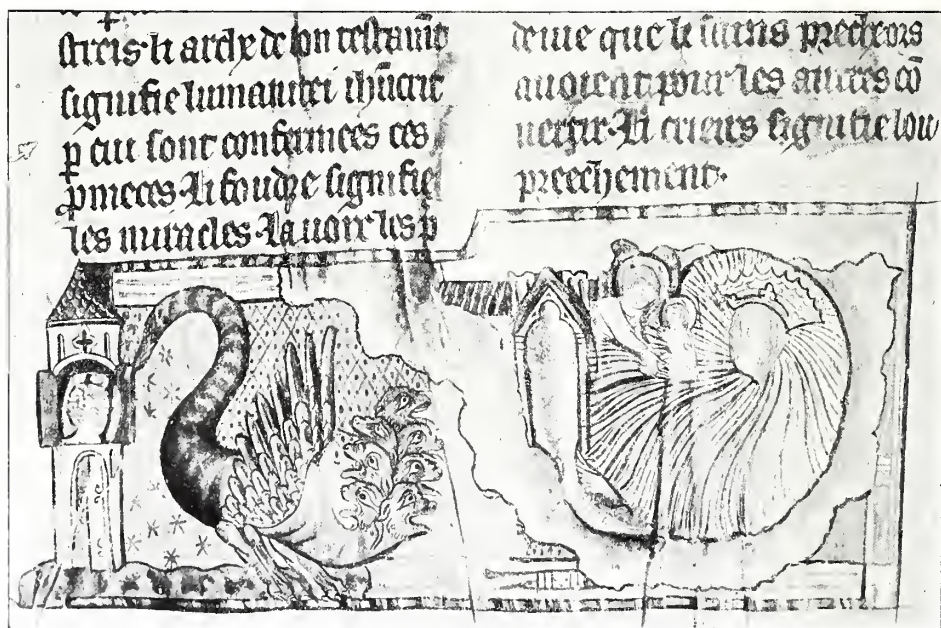 streis· li arche de son testam̄t
signifie lumanitei ihūcrit
p cui sont confermees ces
pmeces· Li foudre signifie
les muracles· La uoix les p
deiue que li sains precheors
auoient pour les autres cō
uertir· Li criers signifie lou
preechement·